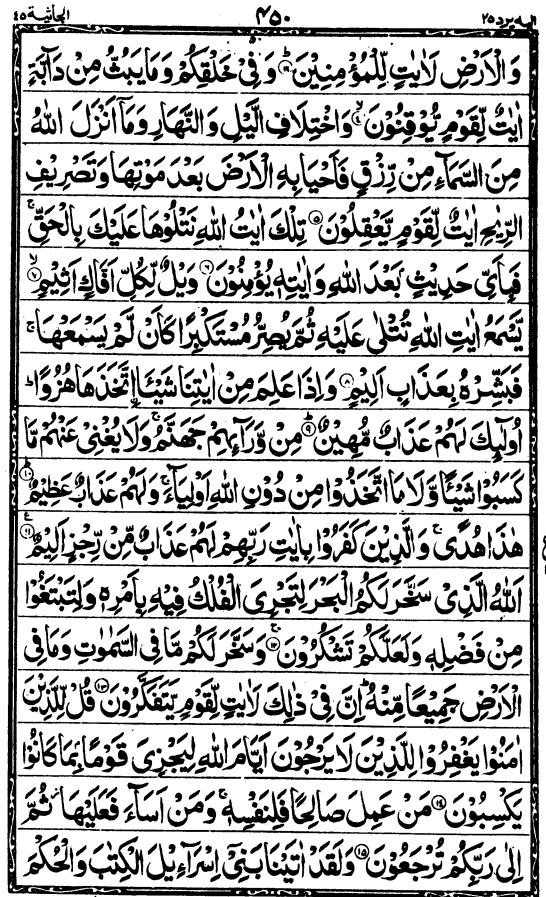 الیه یرد ٢٥ ٤٥٠ الجاثية ٤٥
وَالْاَرْضِ لَاٰيٰتٍ لِّلْمُؤْمِنِيْنَ ؕ٣ وَفِيْ خَلْقِكُمْ وَمَا يَبُثُّ مِنْ دَآبَّةٍ
اٰيٰتٌ لِّقَوْمٍ يُّوْقِنُوْنَ ۙ٤ وَاخْتِلَافِ الَّيْلِ وَالنَّهَارِ وَمَاۤ اَنْزَلَ اللّٰهُ
مِنَ السَّمَآءِ مِنْ رِّزْقٍ فَاَحْيَا بِهِ الْاَرْضَ بَعْدَ مَوْتِهَا وَتَصْرِيْفِ
الرِّيٰحِ اٰيٰتٌ لِّقَوْمٍ يَّعْقِلُوْنَ ٥ تِلْكَ اٰيٰتُ اللّٰهِ نَتْلُوْهَا عَلَيْكَ بِالْحَقِّ ۚ
فَبِاَيِّ حَدِيْثٍۭ بَعْدَ اللّٰهِ وَاٰيٰتِهٖ يُؤْمِنُوْنَ ٦ وَيْلٌ لِّكُلِّ اَفَّاكٍ اَثِيْمٍ ۙ٧
يَّسْمَعُ اٰيٰتِ اللّٰهِ تُتْلٰى عَلَيْهِ ثُمَّ يُصِرُّ مُسْتَكْبِرًا كَاَنْ لَّمْ يَسْمَعْهَا ۚ
فَبَشِّرْهُ بِعَذَابٍ اَلِيْمٍ ٨ وَاِذَا عَلِمَ مِنْ اٰيٰتِنَا شَيْـًٔا اتَّخَذَهَا هُزُوًا ؕ
اُولٰٓئِكَ لَهُمْ عَذَابٌ مُّهِيْنٌ ؕ٩ مِنْ وَّرَآئِهِمْ جَهَنَّمُ ۚ وَلَا يُغْنِيْ عَنْهُمْ مَّا
كَسَبُوْا شَيْـًٔا وَّلَا مَا اتَّخَذُوْا مِنْ دُوْنِ اللّٰهِ اَوْلِيَآءَ ۚ وَلَهُمْ عَذَابٌ عَظِيْمٌ ؕ١٠
هٰذَا هُدًى ۚ وَالَّذِيْنَ كَفَرُوْا بِاٰيٰتِ رَبِّهِمْ لَهُمْ عَذَابٌ مِّنْ رِّجْزٍ اَلِيْمٌ ١١ ع
اَللّٰهُ الَّذِيْ سَخَّرَ لَكُمُ الْبَحْرَ لِتَجْرِيَ الْفُلْكُ فِيْهِ بِاَمْرِهٖ وَلِتَبْتَغُوْا
مِنْ فَضْلِهٖ وَلَعَلَّكُمْ تَشْكُرُوْنَ ۚ١٢ وَسَخَّرَ لَكُمْ مَّا فِي السَّمٰوٰتِ وَمَا فِي
الْاَرْضِ جَمِيْعًا مِّنْهُ ؕ اِنَّ فِيْ ذٰلِكَ لَاٰيٰتٍ لِّقَوْمٍ يَّتَفَكَّرُوْنَ ١٣ قُلْ لِّلَّذِيْنَ
اٰمَنُوْا يَغْفِرُوْا لِلَّذِيْنَ لَا يَرْجُوْنَ اَيَّامَ اللّٰهِ لِيَجْزِيَ قَوْمًۢا بِمَا كَانُوْا
يَكْسِبُوْنَ ١٤ مَنْ عَمِلَ صَالِحًا فَلِنَفْسِهٖ ۚ وَمَنْ اَسَآءَ فَعَلَيْهَا ؗ ثُمَّ
اِلٰى رَبِّكُمْ تُرْجَعُوْنَ ١٥ وَلَقَدْ اٰتَيْنَا بَنِيْۤ اِسْرَآءِيْلَ الْكِتٰبَ وَالْحُكْمَ